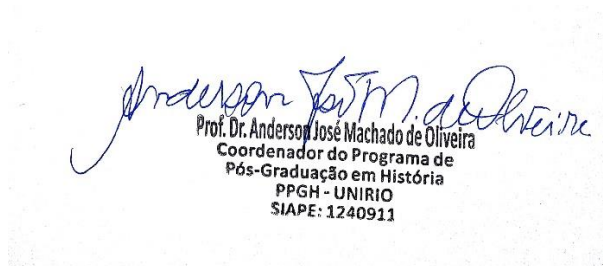 Anderson José M. de Oliveira
Prof. Dr. Anderson José Machado de Oliveira
Coordenador do Programa de
Pós-Graduação em História
PPGH - UNIRIO
SIAPE: 1240911